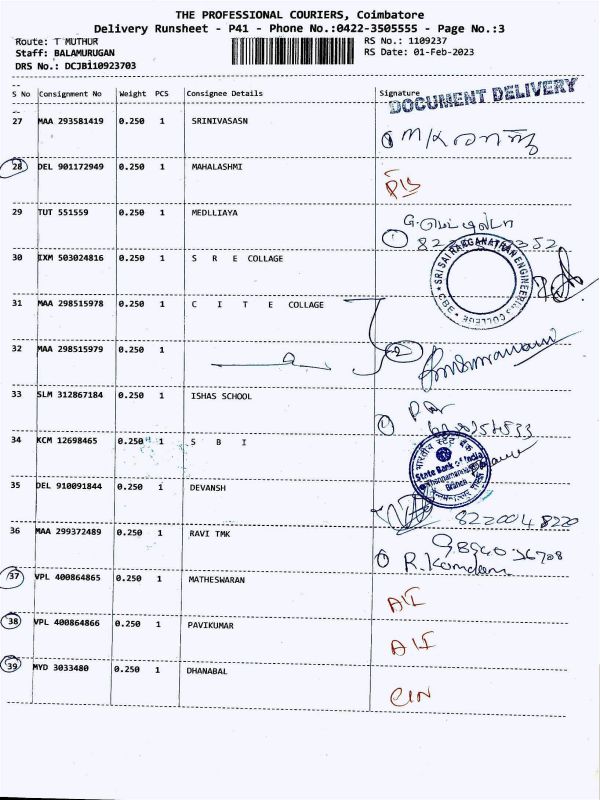 THE PROFESSIONAL COURIERS, Coimbatore
Delivery Runsheet - P41 - Phone No.:0422-3505555 - Page No.:3
Route: T MUTHUR RS No.: 1109237
Staff: BALAMURUGAN RS Date: 01-Feb-2023
DRS No.: DCJB110923703
S No Consignment No Weight PCS Consignee Details Signature
DOCUMENT DELIVERY
27 MAA 293581419 0.250 1 SRINIVASASN
28 DEL 901172949 0.250 1 MAHALASHMI
29 TUT 551559 0.250 1 MEDLLIAYA
30 IXM 503024816 0.250 1 S R E COLLAGE
SRI SAI RANGANATHAN ENGINEERING COLLEGE * CBE *
31 MAA 298515978 0.250 1 C I T E COLLAGE
32 MAA 298515979 0.250 1 2
33 SLM 312867184 0.250 1 ISHAS SCHOOL
34 KCM 12698465 0.250 1 S B I
भारतीय स्टेट बैंक
State Bank of India
Branch
35 DEL 910091844 0.250 1 DEVANSH
8220048220
36 MAA 299372489 0.250 1 RAVI TMK
37 VPL 400864865 0.250 1 MATHESWARAN
38 VPL 400864866 0.250 1 PAVIKUMAR
39 MYD 3033480 0.250 1 DHANABAL